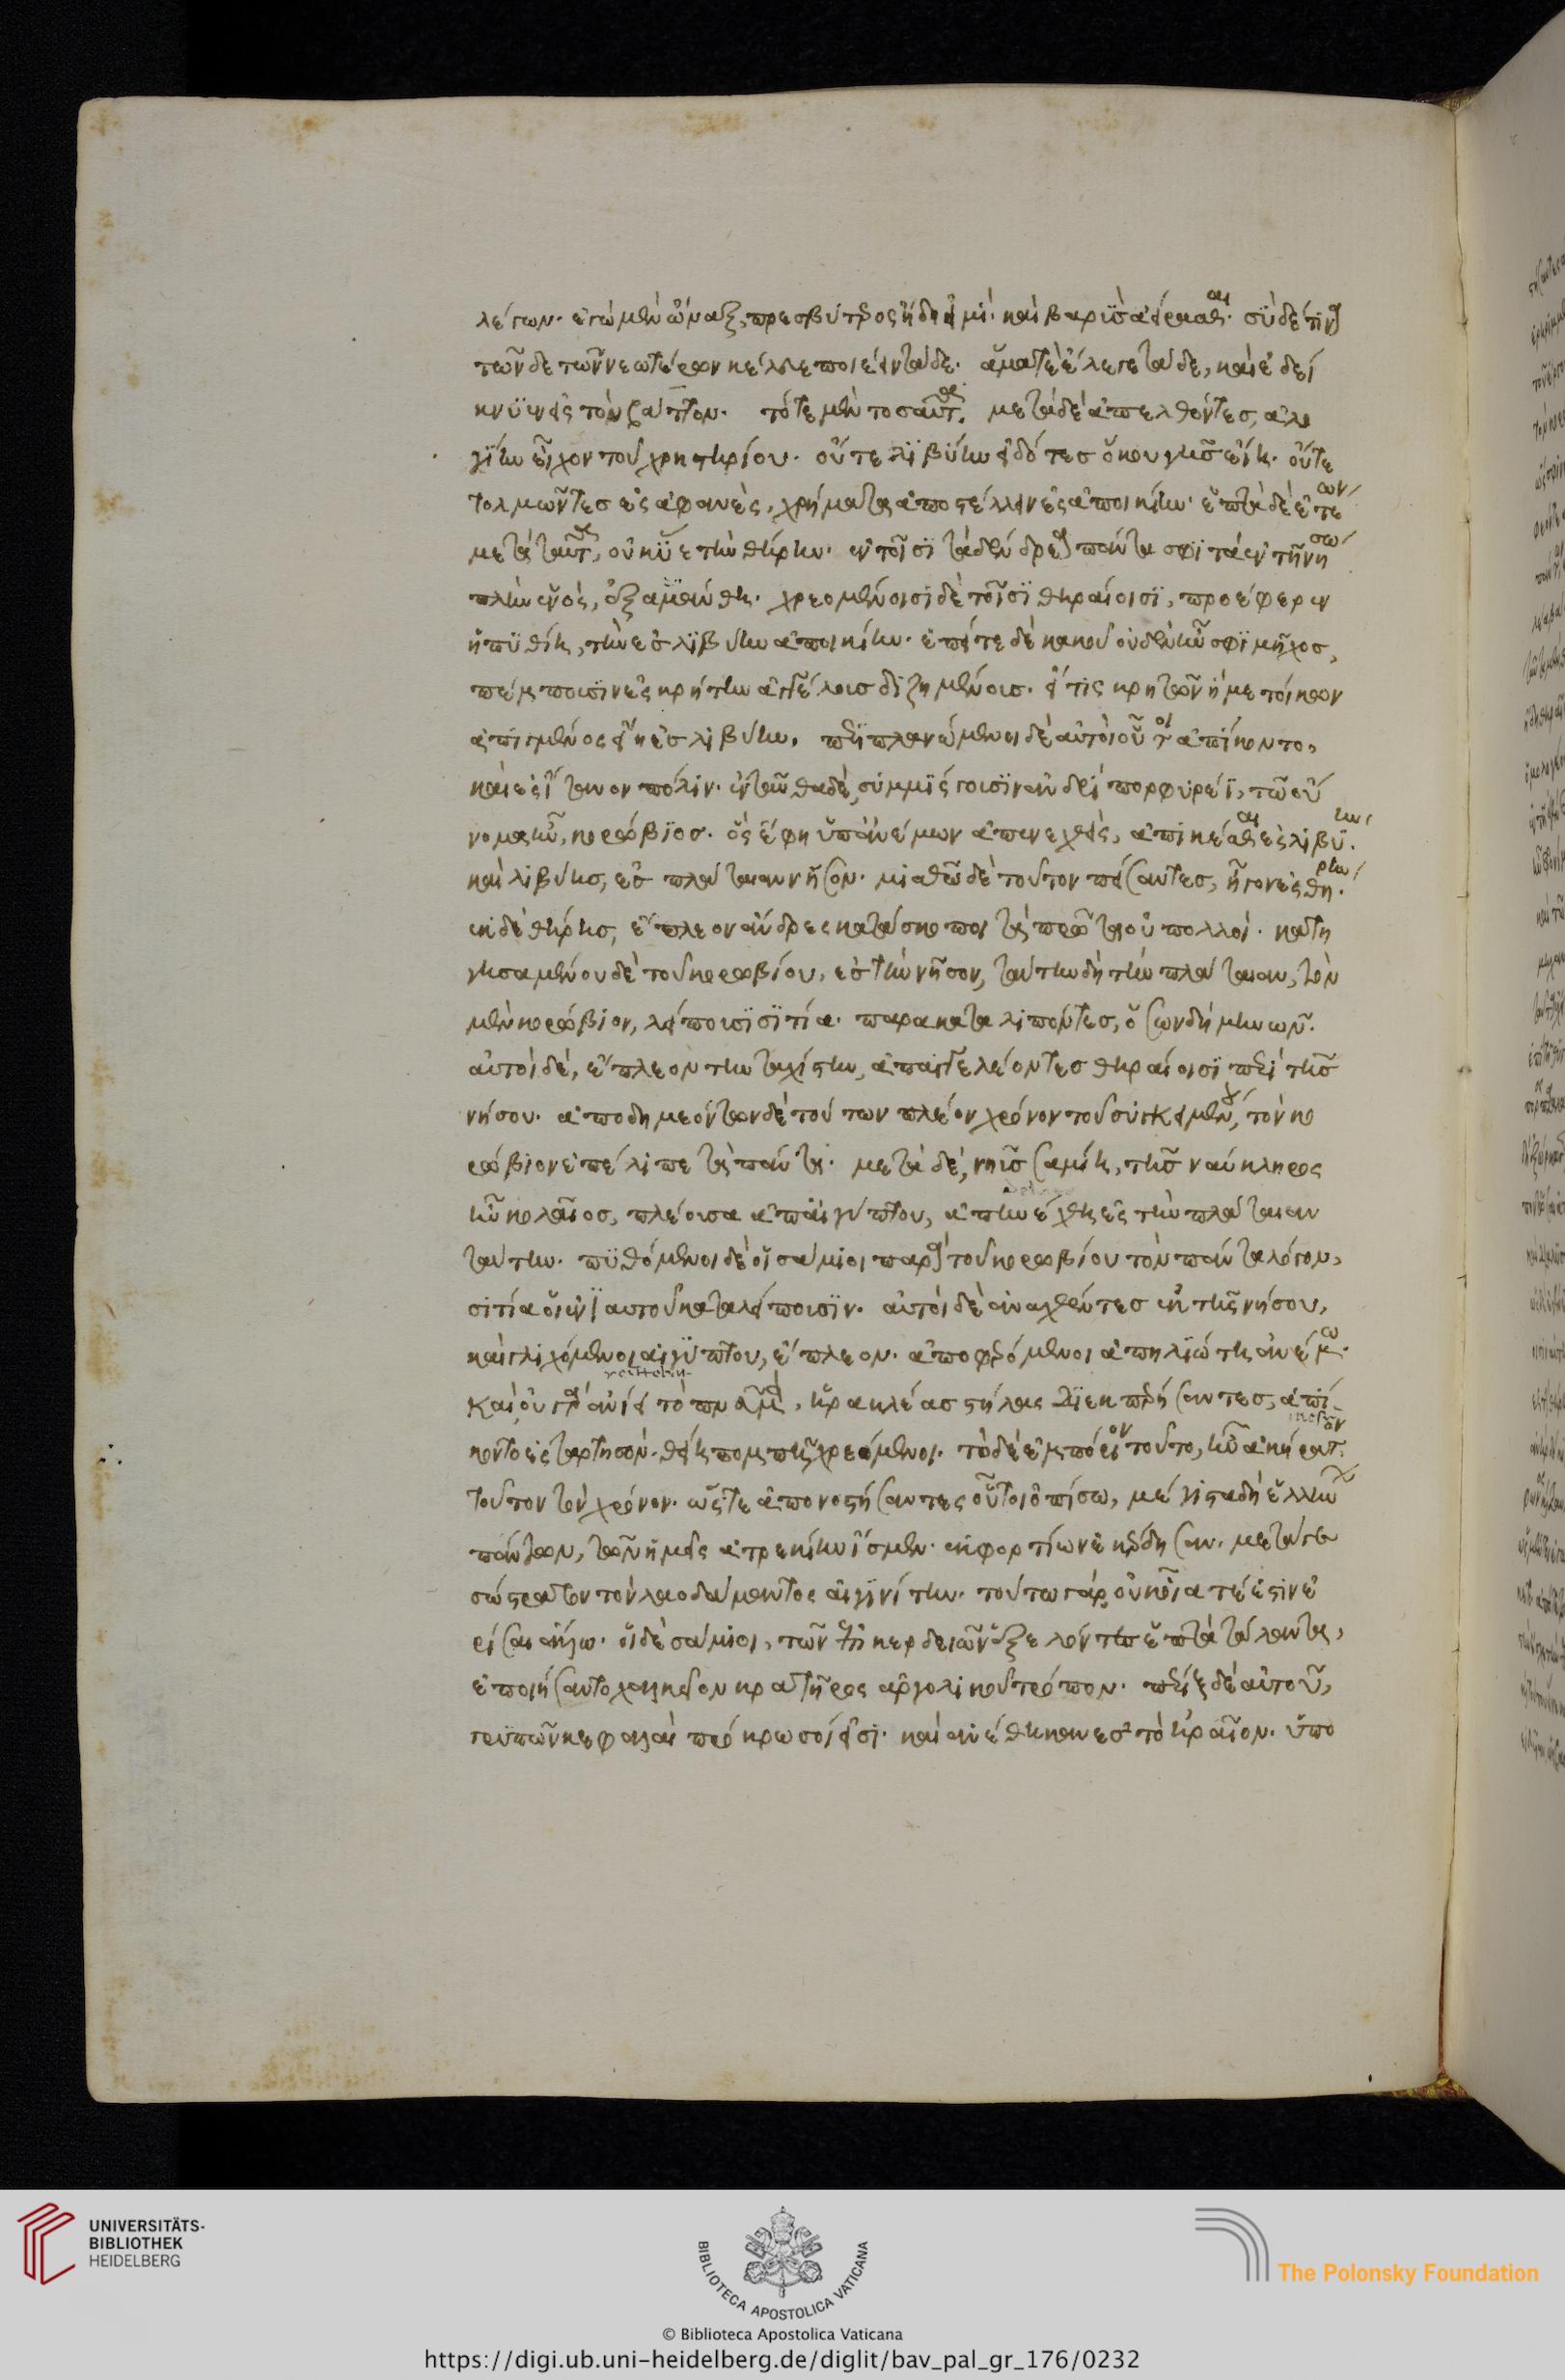 λέγων· ἐγὼ μὲν ὦναξ, πρεσβύτερος ἤδη εἰμί· καὶ βαρὺς ἀείρεσθαι· σὺ δέ τινα
τῶνδε τῶν νεωτέρων κέλευε ποιέειν ταῦτα δε. ἅμά τε ἔλεγε ταῦτα δε, καὶ ἐδεί
κνυεν εἰς τὸν βάττον. τότε μὲν τοσαῦτα. μετὰ δὲ ἀπελθόντες, ἀλο
γίην εἶχον τοῦ χρηστηρίου· οὔτε λιβύην εἰδότες ὅκου γῆς εἴη· οὔτε
τολμῶντες ἐς ἀφανὲς χρῆμα ἀποστέλλειν ἐς ἀποικίην· ἑπτὰ δὲ ἐτέων
μετὰ ταῦτα, οὐκ ὗε τὴν θήρην· ἐν τοῖσι τὰ δένδρεα πάντα σφι τὰ ἐν τῇ νήσω
πλὴν ἑνός, ἐξαυάνθη. χρεομένοισι δὲ τοῖσι θηραίοισι, προέφερεν
ἡ πυθίη, τὴν ἐς λιβύην ἀποικίην. ἐπεί τε δὲ κακοῦ οὐδὲν ἦν σφι μῆχος,
πέμπουσιν ἐς κρήτην ἀγγέλους διζημένους. εἴ τις κρητῶν ἢ μετοίκων
ἀπιγμένος εἴη ἐς λιβύην. περιπλανώμενοι δὲ αὐτὴν οὗτοι ἀπίκοντο,
καὶ ἐς ἴτανον πόλιν. ἐνταῦθα δὲ, συμμίσγουσιν ἀνδρὶ πορφυρέϊ, τῶ οὔ
νομα ἦν, κορώβιος. ὃς ἔφη ὑπ' ἀνέμων ἀπενεχθείς, ἀπικέσθαι ἐς λιβύην.
καὶ λιβύης, ἐς πλατέαν νῆσον. μισθῶ δὲ τοῦτον πείσαντες, ἦγον ἐς θήρην.
ἐκ δὲ θήρης, ἔπλεον ἄνδρες κατάσκοποι τὰ πρῶτα οὐ πολλοί. κατη
γησαμένου δὲ τοῦ κορωβίου, ἐς τὴν νῆσον, ταύτην δὴ τὴν πλατέαν, τὸν
μὲν κορώβιον, λείπουσι σιτία παρακαταλιπόντες, ὅσων δὴ μηνῶν.
αὐτοὶ δέ, ἔπλεον τὴν ταχίστην, ἀπαγγελέοντες θηραίοισι περὶ τῆς
νήσου. ἀποδημεόντων δὲ τούτων πλέον χρόνον τοῦ συγκειμένου, τὸν κο
ρώβιον ἐπέλιπε τὰ πάντα. μετὰ δέ, νηῦς σαμίη, τῆς ναύκληρος
ἦν κολαῖος, πλέουσα ἀπ' αἰγύπτου, ἀπηνείχθη ἐς τὴν πλατέαν
ταύτην. πυθόμενοι δὲ οἱ σάμιοι παρὰ τοῦ κορωβίου τὸν πάντα λόγον,
σιτία οἱ ἐνιαυτοῦ καταλείπουσιν. αὐτοὶ δὲ ἀναχθέντες ἐκ τῆς νήσου,
καὶ γλιχόμενοι αἰγύπτου, ἔπλεον. ἀποφερόμενοι ἀπηλιώτη ἀνέμω.
καὶ, οὐ γὰρ ἀνίει τὸ πνεῦμα, ἡρακλέας στήλας διεκπερήσαντες, ἀπί
κοντο εἰς ταρτησσόν. θείη πομπῆ χρεόμενοι. τὸ δὲ ἐμπόριον τοῦτο, ἦν ἀκήρατον
τοῦτον τὸν χρόνον. ὥστε ἀπονοστήσαντες οὗτοι ὀπίσω, μέγιστα δὴ ἑλλήνων
πάντων, τῶν ἡμεῖς ἀτρεκίην ἴσμεν. ἐκ φορτίων ἐκέρδησαν. μετά γε
σώστρατον τὸν λαοδάμαντος αἰγινήτην. τούτω γὰρ οὐκ οἷά τέ ἐστιν ἐ
ρίσαι ἄλλω. οἱ δὲ σάμιοι, τῶν ἐπικερδειῶν ἐξελόντες ἑπτὰ τάλαντα,
ἐποιήσαντο χαλκεῖον κρατῆρος ἀργολικοῦ τρόπον. πέριξ δὲ αὐτοῦ,
γρυπῶν κεφαλαὶ πρόκρωσοί εἰσι. καὶ ἀνέθηκαν ἐς τὸ ἥραιον. ὑπο
UNIVERSITÄTS-
BIBLIOTHEK
HEIDELBERG
BIBLIOTECA APOSTOLICA VATICANA
The Polonsky Foundation
© Biblioteca Apostolica Vaticana
https://digi.ub.uni-heidelberg.de/diglit/bav_pal_gr_176/0232